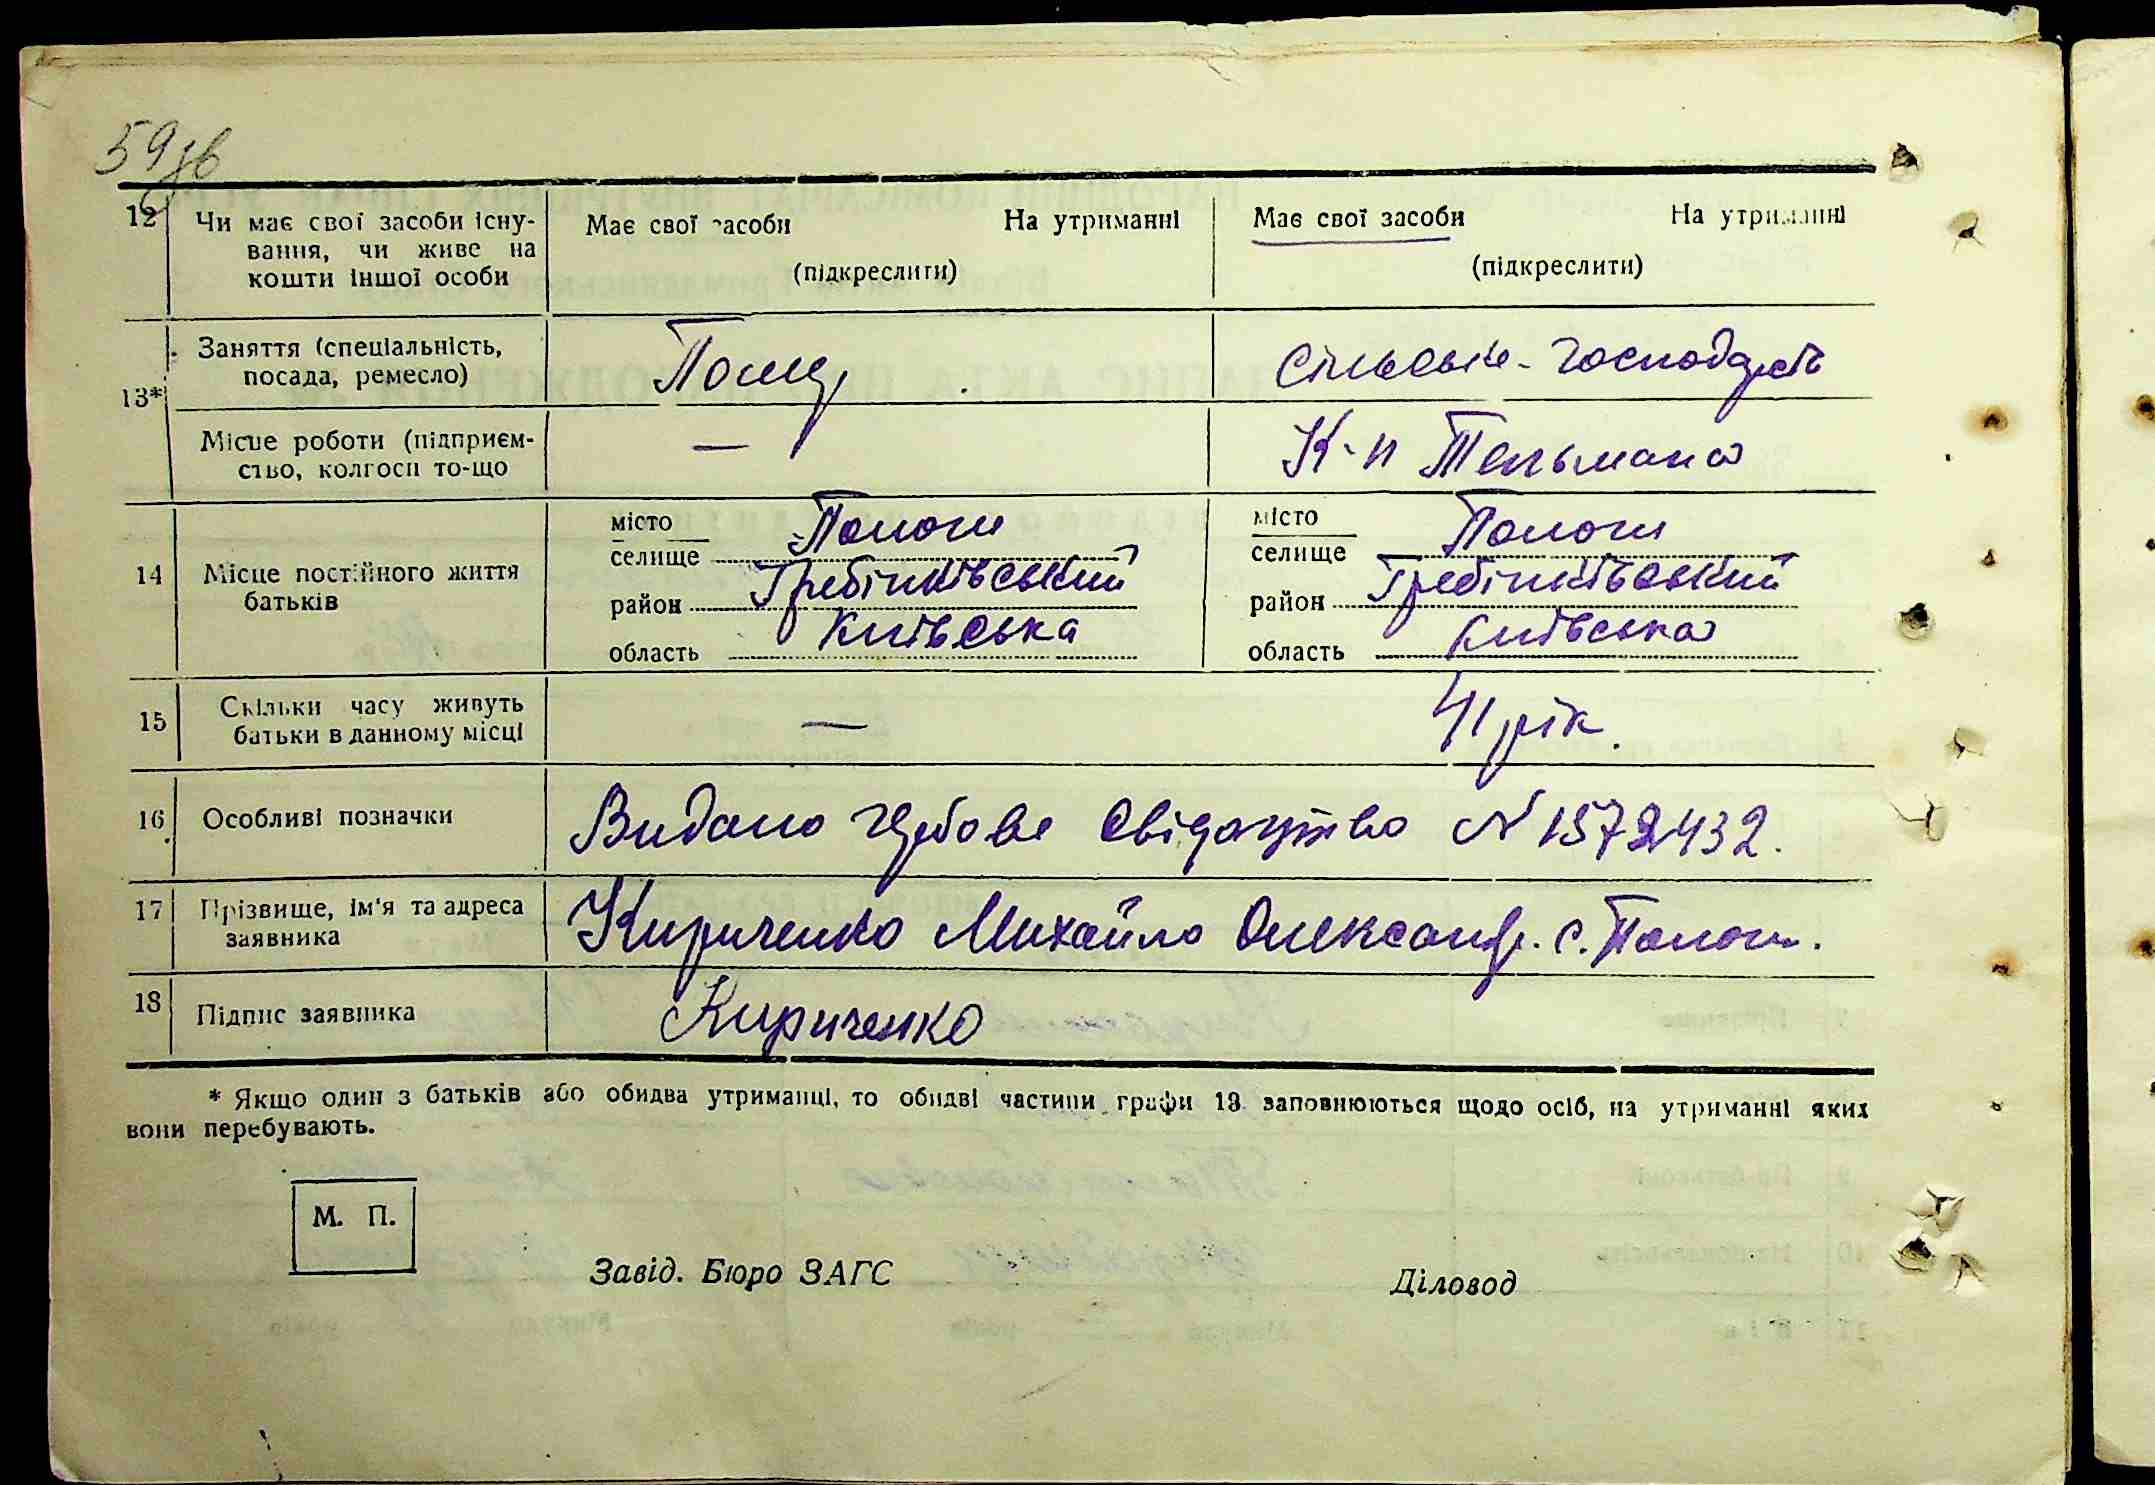 59зв
12 Чи має свої засоби існу- Має свої засоби На утриманні Має свої засоби На утриманні
вання, чи живе на (підкреслити) (підкреслити)
кошти іншої особи
13* Заняття (спеціальність, Помер Сільське-господарств
посада, ремесло)
Місце роботи (підприєм- — К-п Тельмана
ство, колгосп то-що
14 Місце постійного життя батьків
місто Пологи місто Пологи
селище селище
район Гребінківський район Гребінківський
область Київська область Київська
15 Скільки часу живуть — 41 рік.
батьки в данному місці
16 Особливі позначки Видано гербове свідоцтво N 1572432.
17 Прізвище, ім'я та адреса Кириченко Михайло Олександр. с. Пологи.
заявника
18 Підпис заявника Кириченко
* Якщо один з батьків або обидва утриманці, то обидві частини графи 13 заповнюються щодо осіб, на утриманні яких
вони перебувають.
М. П.
Завід. Бюро ЗАГС Діловод